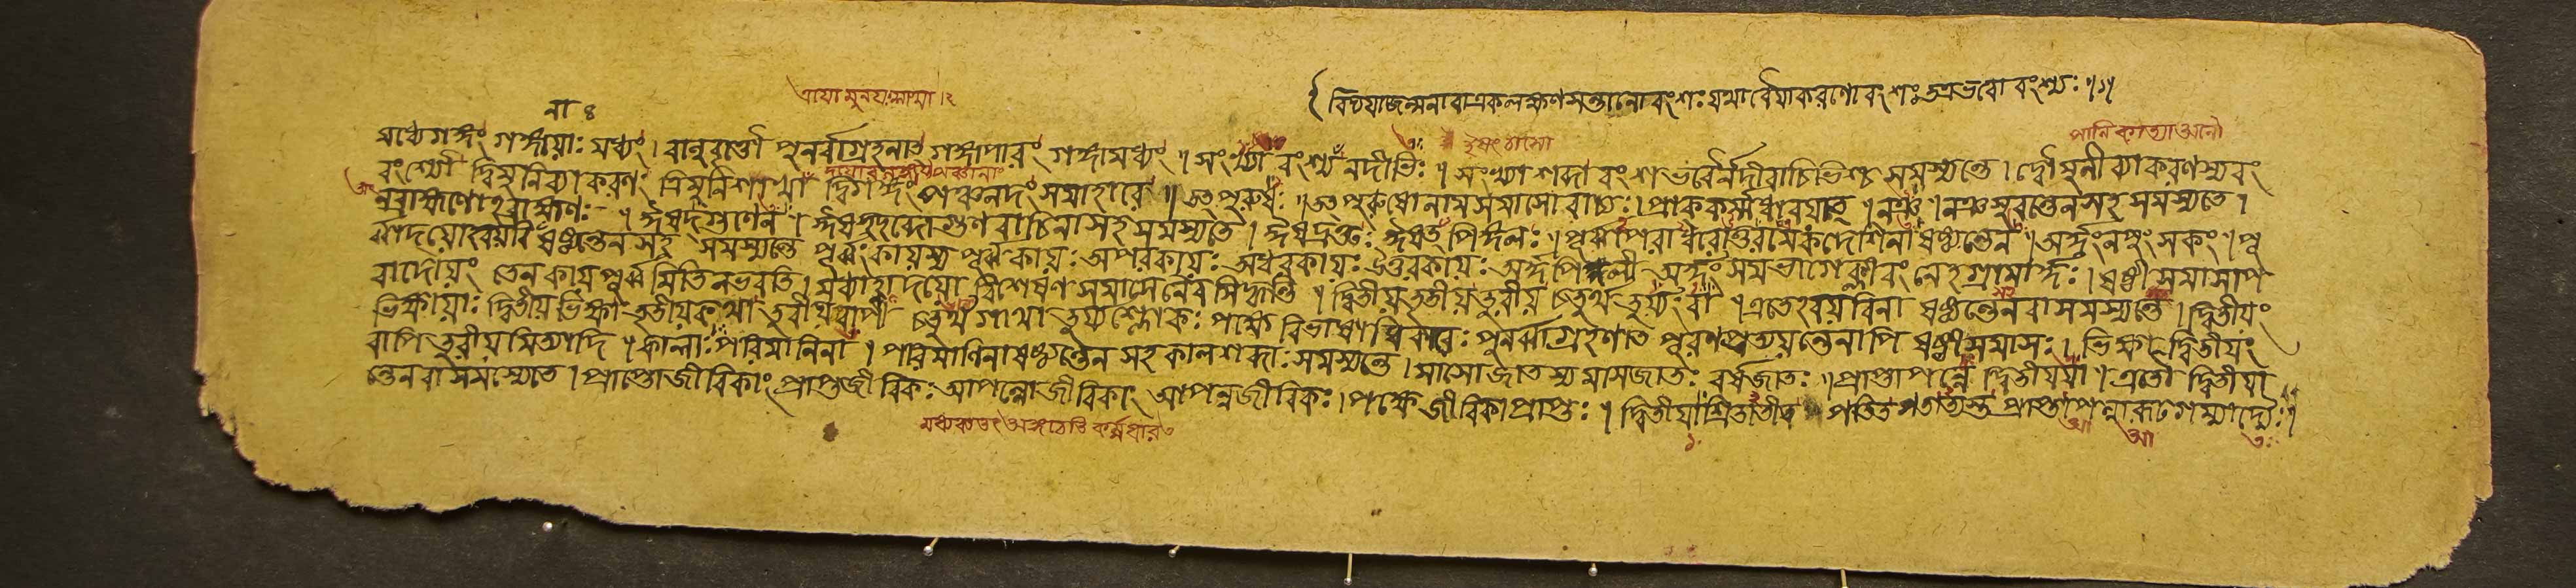 বিদ্যযাজন্মনাবাএকলক্ষণসন্তানোবংশঃ যথাবৈয়াকরণোবংশঃ তত্রভবো বংশ্যঃ ।১।
না ৪
মধ্যেগঙ্গং গঙ্গায়াঃ মধ্যং । বানুবৃত্তৌ পুনর্বাগ্রহনাত্ গঙ্গাপারং গঙ্গামধ্যং । সংখ্যা বংশ্যৈ নদীভিঃ । সংখ্যাশব্দা বংশভবৈর্নদীবাচিভিশ্চ সমস্যন্তে । দ্বৌ মুনী ব্যাকরণস্য বং
বংশ্যৌ দ্বিমুনিব্যাকরণং ত্রিমুনি দ্বিগঙ্গং পঞ্চনদং সমাহারে ॥ তত্পুরুষঃ ॥ তত্পুরুষোনামসমাসো বাচ্যঃ । প্রাক্কর্ম্মধারয়াত্ । নঞ্ । নঞ্ সুবন্তেনসহ সমস্যতে ।
নব্রাহ্মণোঽব্রাহ্মণঃ । ঈষদ্গুণেন । গুণবাচিনাসহ সমস্যতে । ঈষদ্রক্তঃ ঈষত্পিঙ্গলঃ । পূর্ব্বাপরাধরোত্তরমেকদেশিনা ষষ্ঠ্যন্তেন । অর্দ্ধং নপুংসকং । পূ
র্ব্বাদয়োঽবয়বি ষষ্ঠ্যন্তেন সহ সমস্যন্তে পূর্ব্বংকায়স্য পূর্ব্বকায়ঃ অপরকায়ঃ অধরকায়ঃ উত্তরকায়ঃ অর্দ্ধপিপ্পলী অর্দ্ধং সমভাগেক্লীবং নেহগ্রামার্দ্ধঃ । ষষ্ঠীসমাসাপ
বাদোয়ং তেন কায়পূর্ব্বমিতি নভবতি । মধ্যাহ্নাদয়ো বিশেষণ সমাসেনৈবসিদ্ধ্যন্তি । দ্বিতীয়তৃতীয়তুরীয় চতুর্থতুর্য্যং বা । এতেঽবয়বিনা ষষ্ঠ্যন্তেনবাসমস্যন্তে । দ্বিতীয়ং
ভিক্ষায়াঃ দ্বিতীয়ভিক্ষা তৃতীয়কন্থা চতুর্থগাথা তুর্য্যশ্লোকঃ পক্ষে বিভাষাধিকারে পুনর্ব্বাগ্রহণাত্ পূরণপ্রত্যয়ন্তেনাপি ষষ্ঠীসমাসঃ । ভিক্ষাদ্বিতীয়ং
বাপি তুরীয়মিত্যাদি । কালাঃ পরিমানিনা । পরিমাণিনাষষ্ঠ্যন্তেন সহ কালশব্দাঃ সমস্যন্তে । মাসোজাতস্য মাসজাতঃ বর্ষজাতঃ । প্রাপ্তাপন্নে দ্বিতীয়য়া । এতৌ দ্বিতীয়া
ন্তেনবাসমস্যেতে । প্রাপ্তোজীবিকাং প্রাপ্তজীবিকঃ আপন্নোজীবিকাং আপন্নজীবিকঃ । পক্ষে জীবিকাপ্রাপ্তঃ । দ্বিতীয়াশ্রিতাতীত পতিত গতাত্যস্ত প্রাপ্তাপন্নারূঢগম্যাদ্যৈঃ ।